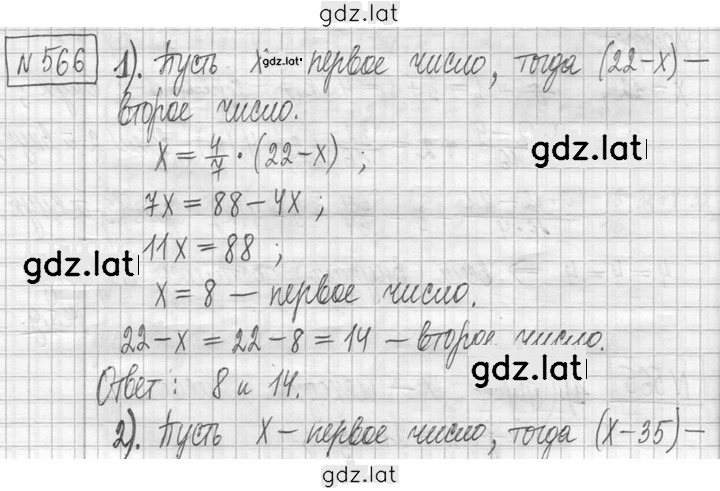 gdz.lat
№ 566 1). Пусть x gdz.lat первое число, тогда (22-x) —
второе число.
x = 4/7 · (22-x) ;
gdz.lat
7x = 88 - 4x ;
11x = 88 ;
gdz.lat
x = 8 — первое число.
22 - x = 22 - 8 = 14 — второе число.
gdz.lat
Ответ: 8 и 14.
2). Пусть x — первое число, тогда (x-35) —
gdz.lat